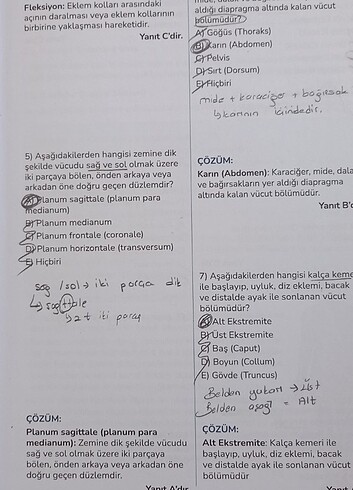 Fleksiyon: Eklem kolları arasındaki
açının daralması veya eklem kollarının
birbirine yaklaşması hareketidir.
Yanıt C'dir.
5) Aşağıdakilerden hangisi zemine dik
şekilde vücudu sağ ve sol olmak üzere
iki parçaya bölen, önden arkaya veya
arkadan öne doğru geçen düzlemdir?
A) Planum sagittale (planum para
medianum)
B) Planum medianum
C) Planum frontale (coronale)
D) Planum horizontale (transversum)
E) Hiçbiri
sağ / sol → iki parça dik
↳ sagittale
↳ 2 t iki parça
ÇÖZÜM:
Planum sagittale (planum para
medianum): Zemine dik şekilde vücudu
sağ ve sol olmak üzere iki parçaya
bölen, önden arkaya veya arkadan öne
doğru geçen düzlemdir.
Yanıt A'dır.
aldığı diapragma altında kalan vücut
bölümüdür?
A) Göğüs (Thoraks)
B) Karın (Abdomen)
C) Pelvis
D) Sırt (Dorsum)
E) Hiçbiri
mide + karaciğer + bağırsak
↳ karının içindedir.
ÇÖZÜM:
Karın (Abdomen): Karaciğer, mide, dala
ve bağırsakların yer aldığı diapragma
altında kalan vücut bölümüdür.
Yanıt B'd
7) Aşağıdakilerden hangisi kalça keme
ile başlayıp, uyluk, diz eklemi, bacak
ve distalde ayak ile sonlanan vücut
bölümüdür?
A) Alt Ekstremite
B) Üst Ekstremite
C) Baş (Caput)
D) Boyun (Collum)
E) Gövde (Truncus)
Belden yukarı → Üst
Belden aşağı = Alt
ÇÖZÜM:
Alt Ekstremite: Kalça kemeri ile
başlayıp, uyluk, diz eklemi, bacak
ve distalde ayak ile sonlanan vücut
bölümüdür